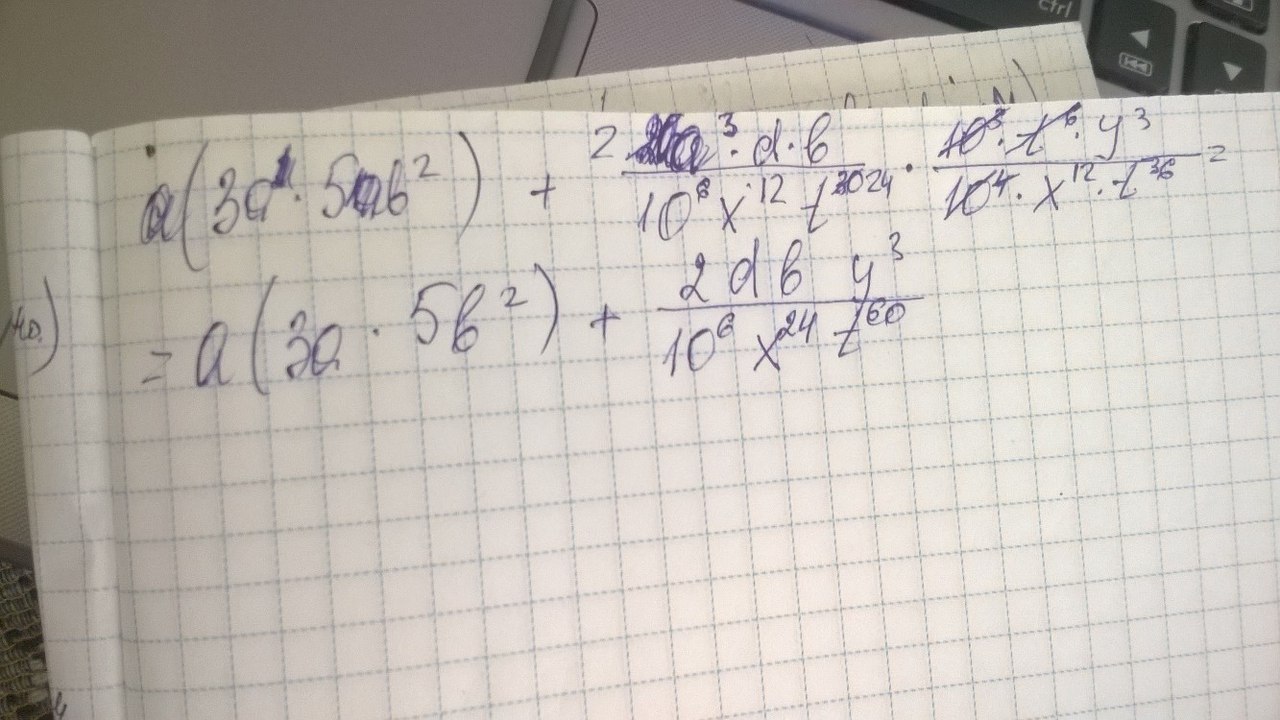 ctrl
a(3a · 5ab²) + 2a³·d·b / 10⁶ x¹² t²⁴ · 10³·t⁶·y³ / 10⁴·x¹²·t³⁶ =
= a(3a · 5b²) + 2 d b y³ / 10⁶ x²⁴ t⁶⁰